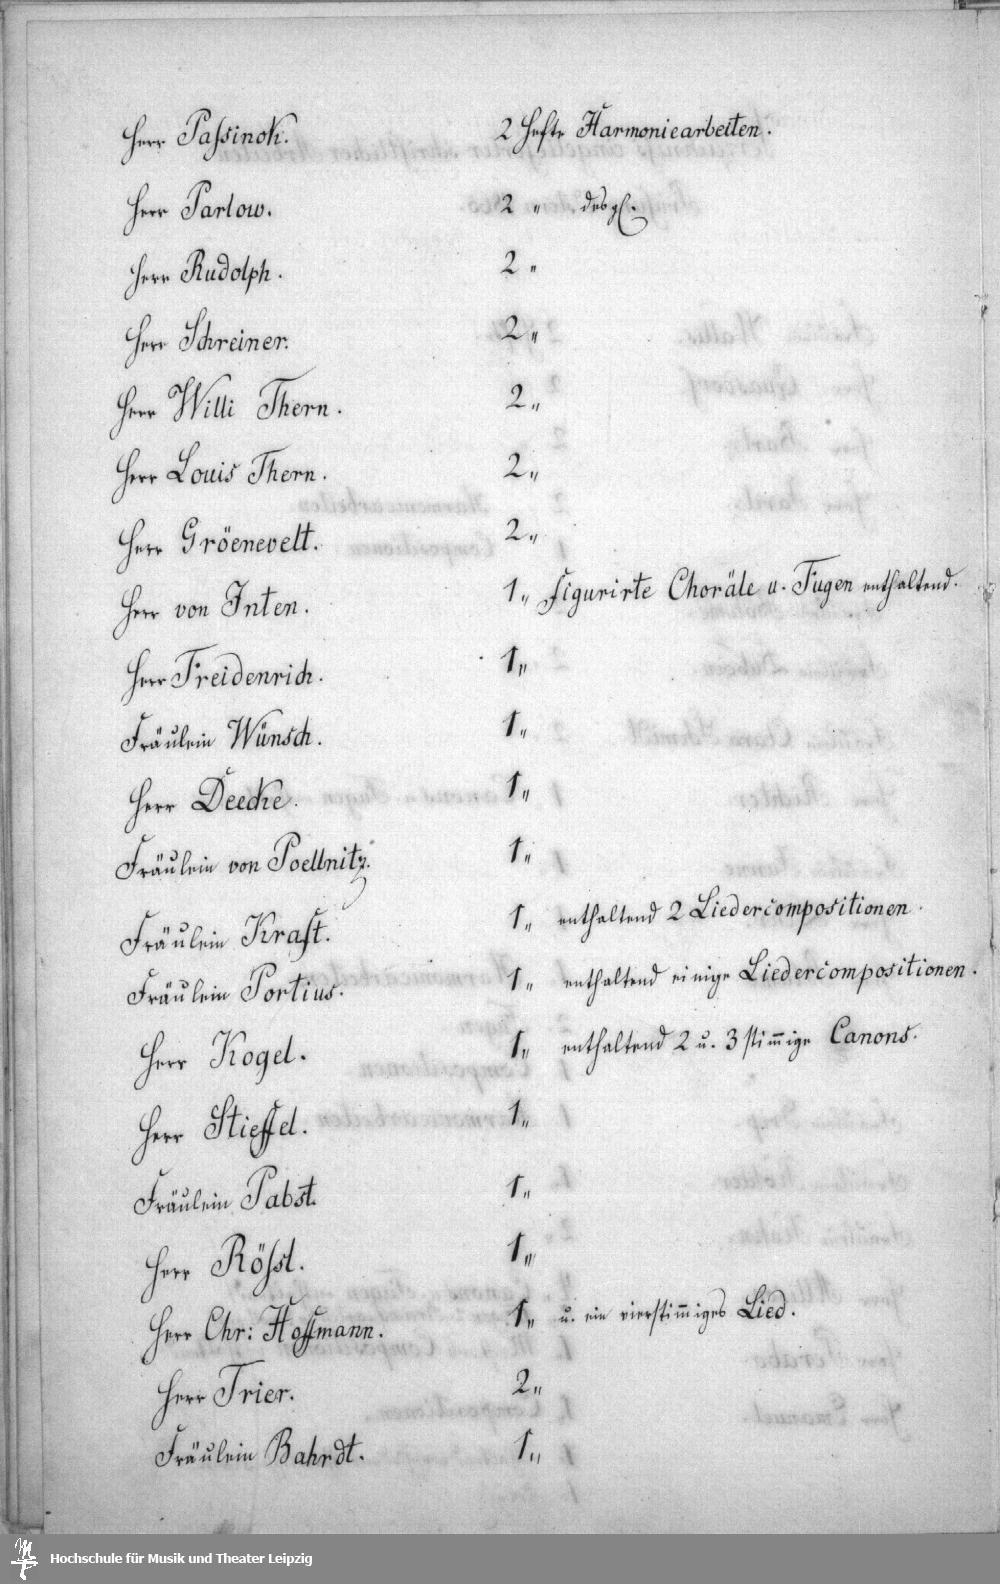 Herr Paſsinok. 2 Hefte Harmoniearbeiten.
Herr Parlow. 2 " desgl.
Herr Rudolph. 2 "
Herr Schreiner. 2 "
Herr Willi Thern. 2 "
Herr Louis Thern. 2 "
Herr Gröenevelt. 2 "
Herr von Inten. 1 " Figurirte Choräle u. Fugen enthaltend.
Herr Freidenrich. 1 "
Fräulein Wünsch. 1 "
Herr Deecke. 1 "
Fräulein von Poellnitz. 1 "
Fräulein Kraft. 1 " enthaltend 2 Liedercompositionen.
Fräulein Portius. 1 " enthaltend einige Liedercompositionen.
Herr Kogel. 1 " enthaltend 2 u. 3 stim̅ige Canons.
Herr Stieffel. 1 "
Fräulein Pabst. 1 "
Herr Röſsl. 1 "
Herr Chr: Hoffmann. 1 " u. ein vierstim̅iges Lied.
Herr Trier. 2 "
Fräulein Bahrdt. 1 "
Hochschule für Musik und Theater Leipzig